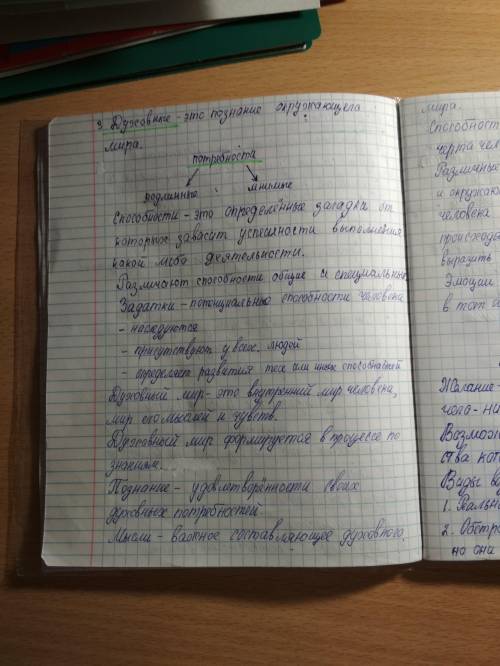 3 Духовные - это познание окружающего
мира.
потребности
подлинные мнимые
Способности - это определённые загадки от
которых завасит успешности выполнения
какой либо деятельности.
Различают способности общие и специальные
Задатки - потенциальные способности человека
- наследуются
- присутствуют у всех людей
- определяет развития тех или иных способностей
Духовный мир - это внутренний мир человека,
мир его мыслей и чувств.
Духовный мир формируется в процессе по
знания.
Познание - удовлетворённости своих
духовных потребностей
Мысли - важное составляющее духовного,
мира.
Способност
черта чел
Различные
и окружаю
человека
происходя
выразить
Эмоции
в тот
Желание -
чего-ни
Возмож
ства ко
Виды во
1. Реально
2. Обстр
но они